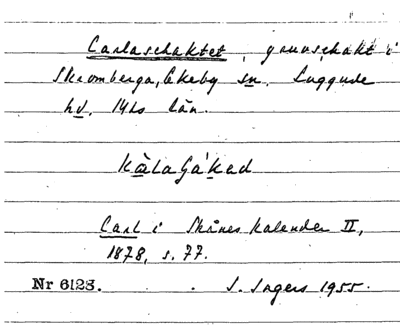 Carlaschaktet, gruvschakt i
Skromberga, Ekeby sn. Luggude
hd. Mhs län.
Carl i Skånes kalender II,
1878, s. 77.
Nr 6123. S. Ingers 1955.